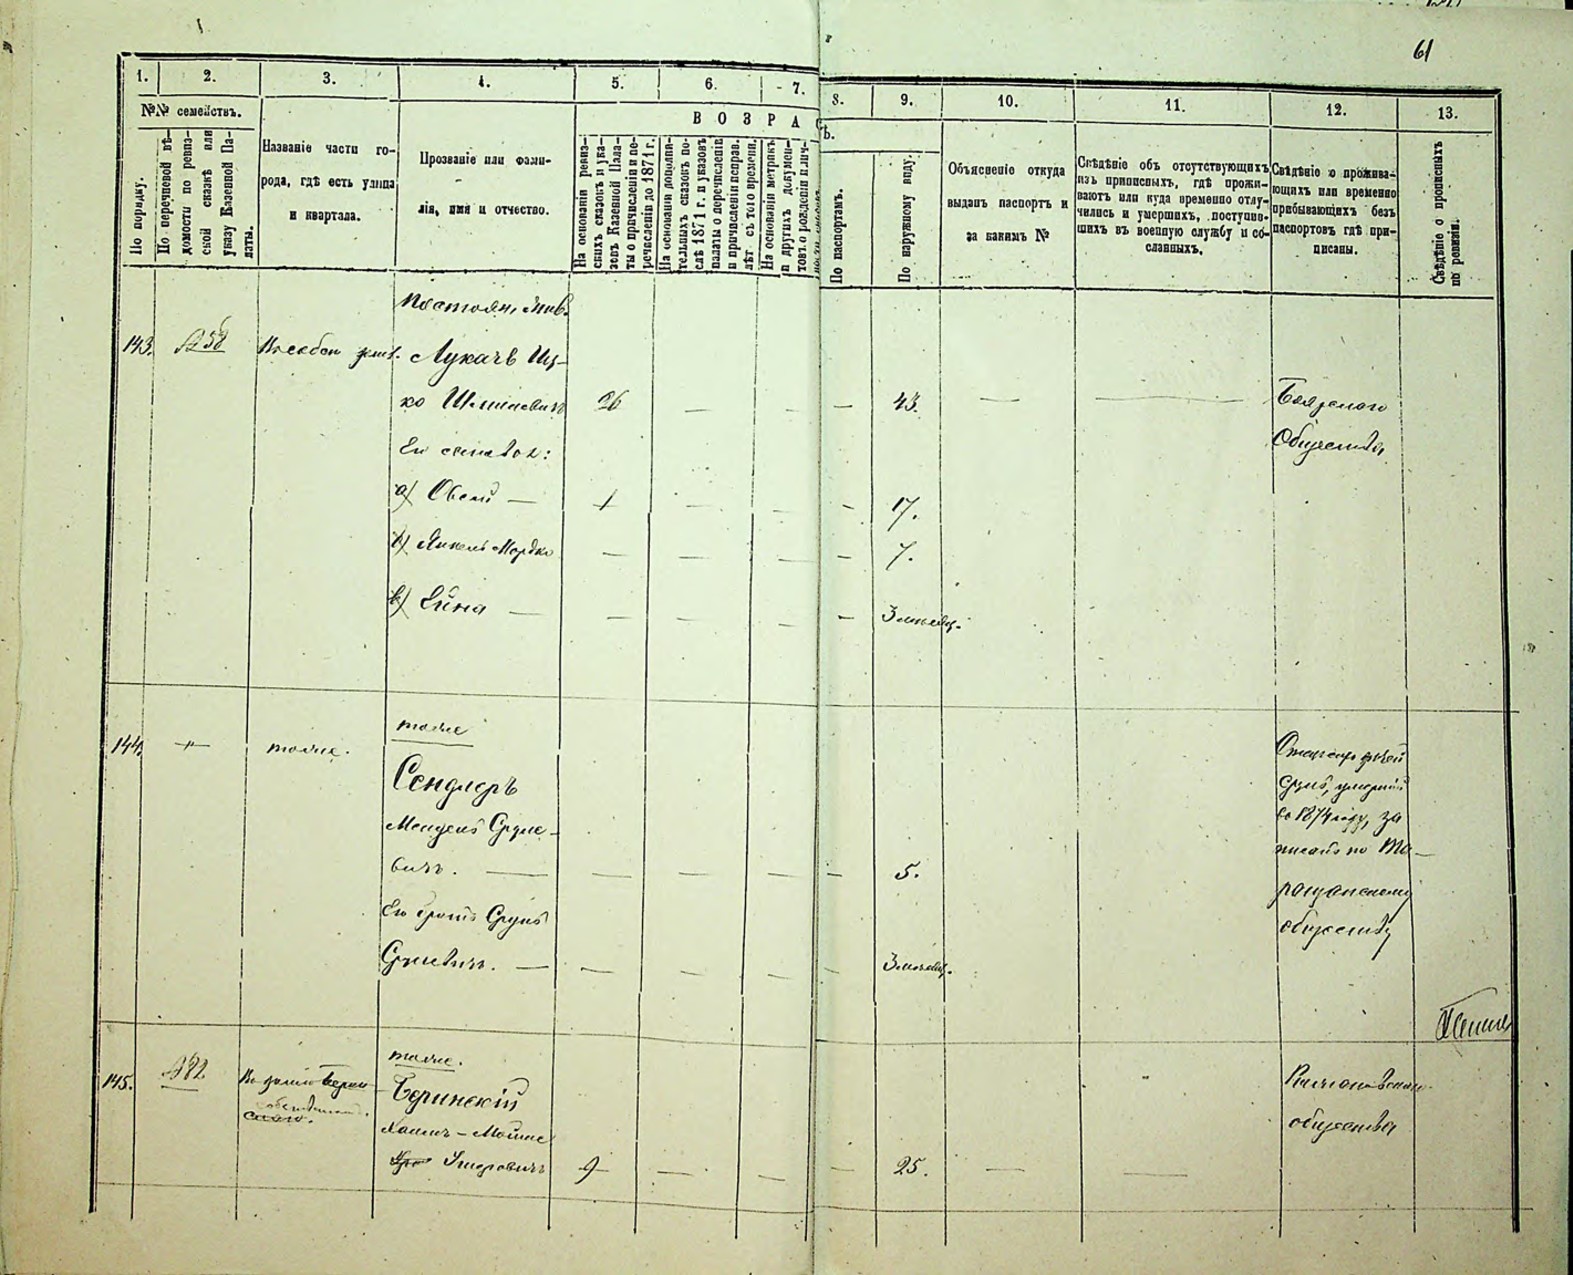 61
1.
2.
3.
4.
5.
6.
7.
8.
9.
10.
11.
12.
13.
№№ семействъ.
По порядку.
По перечневой вѣ-
домости по ревиз-
ской сказкѣ или
указу Казенной Па-
латы.
Названіе части го-
рода, гдѣ есть улица
и квартала.
Прозваніе или фами-
лія, имя и отчество.
ВОЗРАСТЪ.
На основаніи ревиз-
скихъ сказокъ и ука-
зовъ Казенной Пала-
ты о причисленіи и пе-
речисленіи до 1871 г.
На основаніи дополни-
тельныхъ сказокъ по-
слѣ 1871 г. и указовъ
палаты о перечисленіи
и причисленіи неправ.
лѣт съ того времени.
На основаніи метрикъ
и другихъ докумен-
товъ о рожденіи и лич-
По паспортамъ.
По наружному виду.
Объясненіе откуда
выданъ паспортъ и
за какимъ №
Свѣдѣніе объ отсутствующихъ
изъ приписныхъ, гдѣ прожи-
ваютъ или куда временно отлу-
чились и умершихъ, поступив-
шихъ въ военную службу и со-
сланныхъ.
Свѣдѣніе о прожива-
ющихъ или временно
прибывающихъ безъ
паспортовъ гдѣ при-
писаны.
Свѣдѣніе о прописныхъ
по ревизіи.
Постоян. жив.
143.
58
Лукачъ Иц-
ко Шмилевичъ
26
43.
Боярского
Общества
Его сыновья:
а) Овсей
1
17.
б) Янкель Мордко
7.
в) Ейна
3 месяц.
144.
тоже.
тоже
Сендлеръ
Мендель Сруле-
вичъ.
5.
Его братъ Срулъ
Срулевичъ.
3 месяц.
Отецъ
Сруль, умерший
въ 1874 году, за
писанъ по Та-
ращанскому
обществу
145.
382
тоже.
Въ доме
Беринскій
Хаимъ-Мойше
9
25.
общества